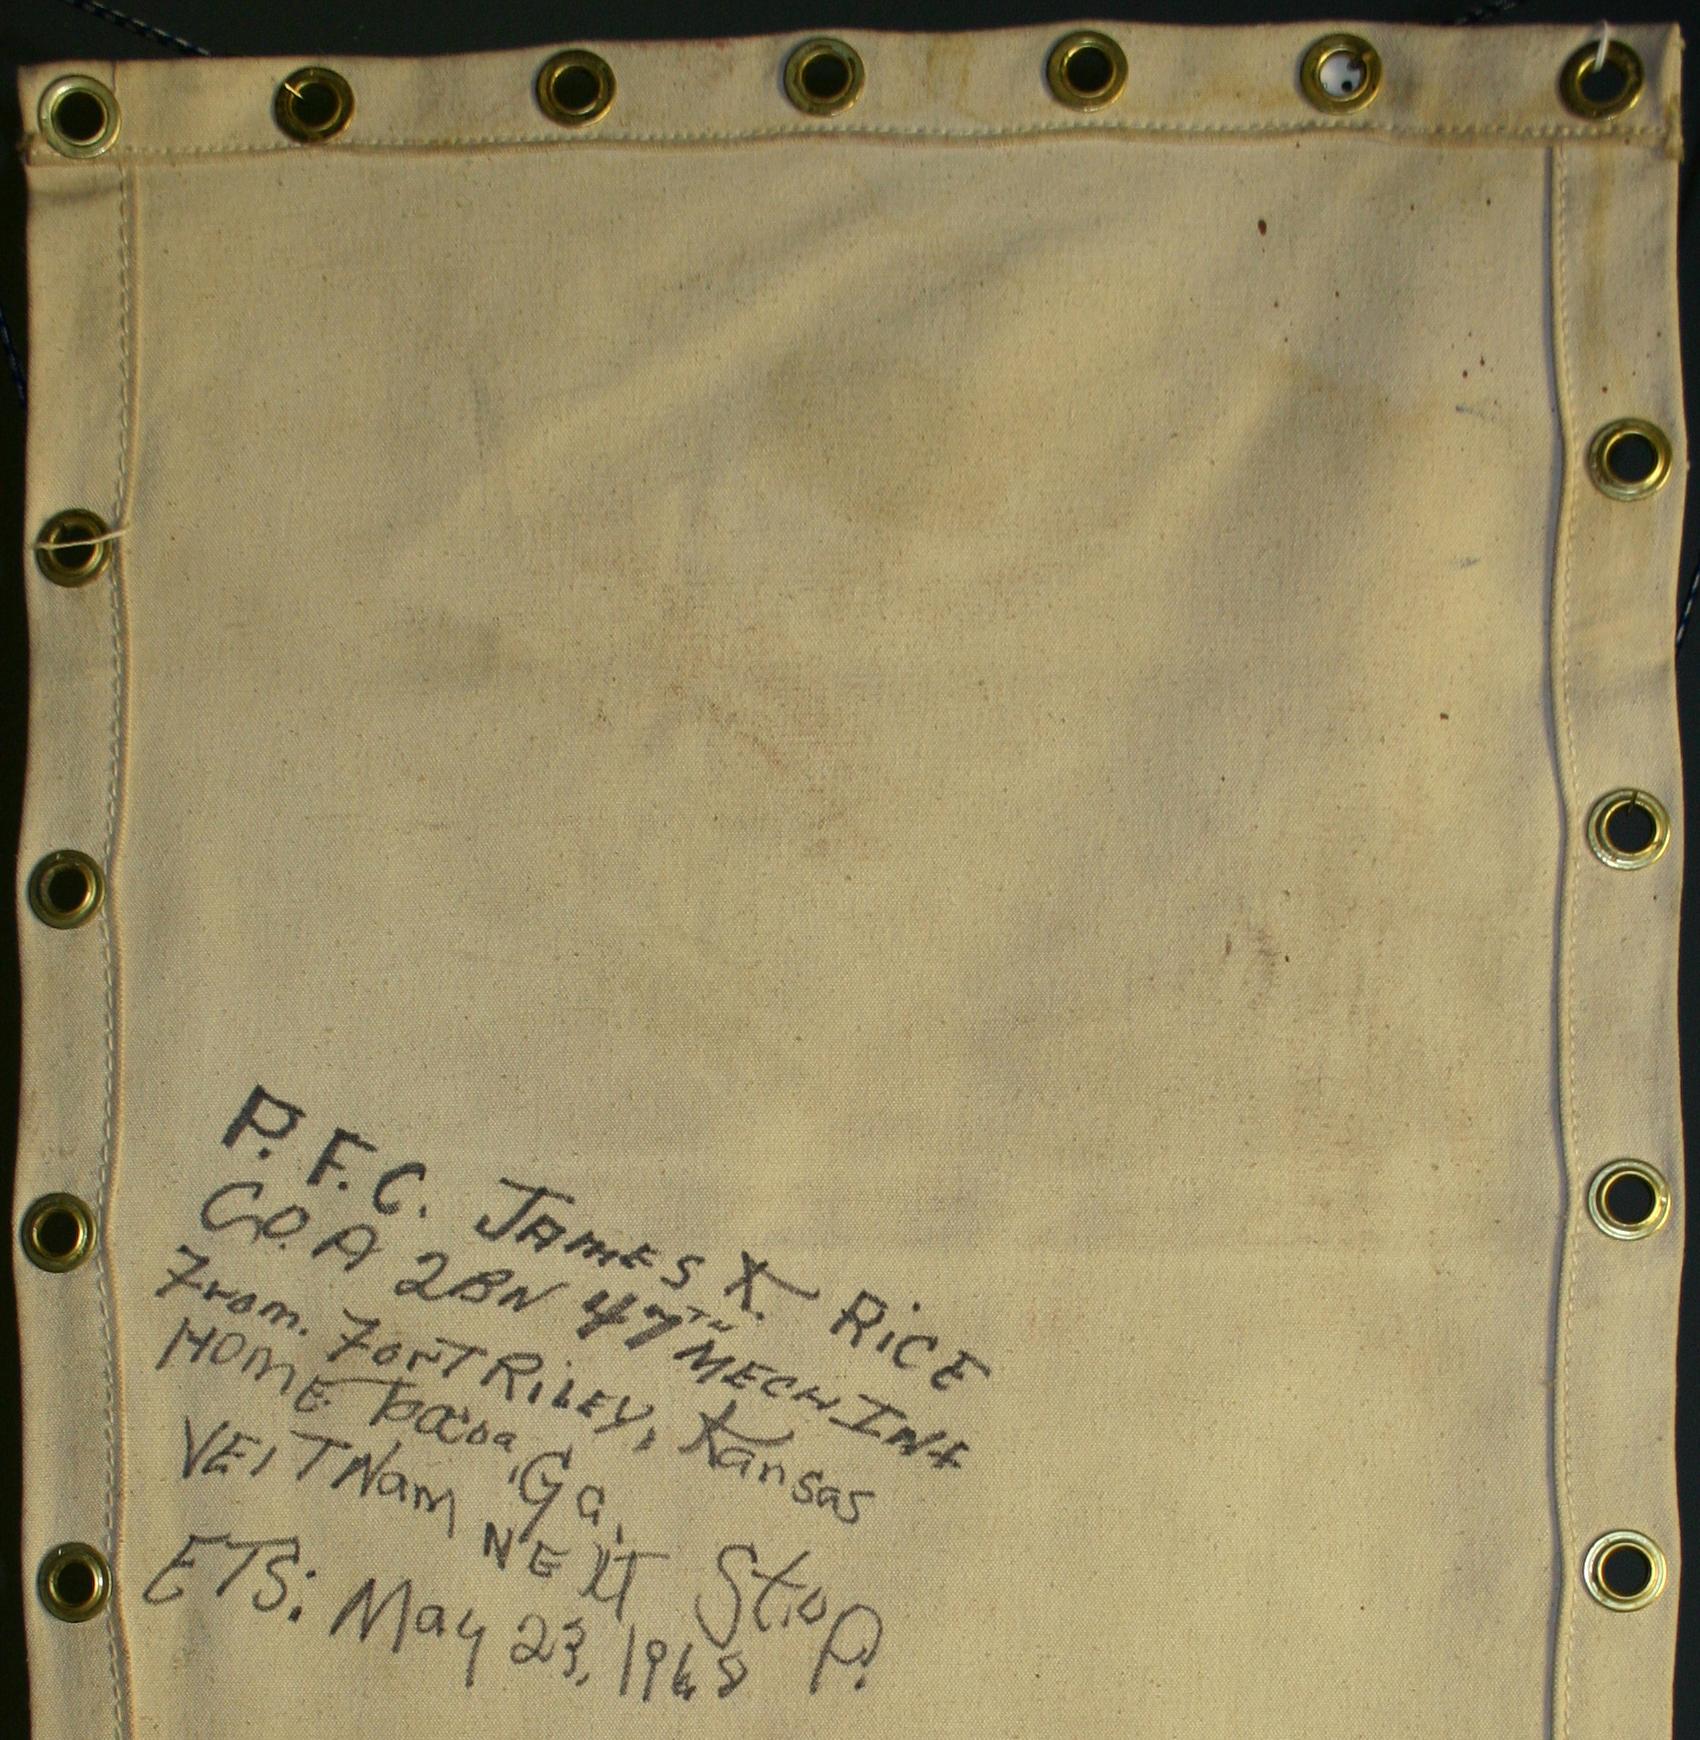 P. F. C. JAMES K. RiCE
CO. A 2BN 47TH MECH INf
From. FORT RiLEY, Kansas
HOME Tocoa, Ga.
VEITNam NEXT Stop.
ETS: May 23, 1968